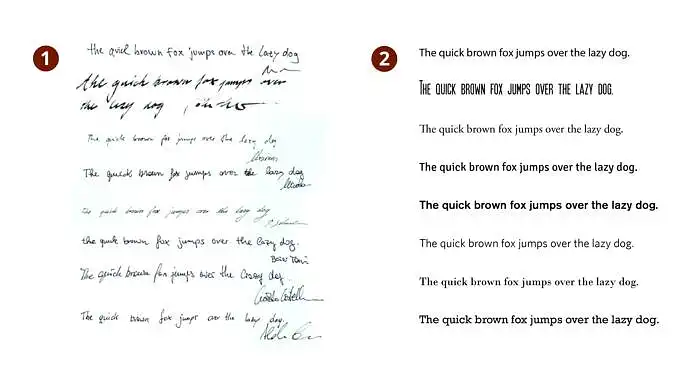 1
the quick brown fox jumps over the lazy dog
the quick brown fox jumps over
the lazy dog
The quick brown fox jumps over the lazy dog
The quick brown fox jumps over the lazy dog
The quick brown fox jumps over the lazy dog
the quick brown fox jumps over the lazy dog.
The quick brown fox jumps over the dog.
The quick brown fox jumps over the lazy dog.
2
The quick brown fox jumps over the lazy dog.
THE QUICK BROWN FOX JUMPS OVER THE LAZY DOG.
The quick brown fox jumps over the lazy dog.
The quick brown fox jumps over the lazy dog.
The quick brown fox jumps over the lazy dog.
The quick brown fox jumps over the lazy dog.
The quick brown fox jumps over the lazy dog.
The quick brown fox jumps over the lazy dog.